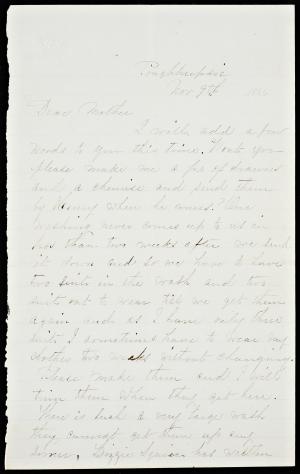 Poughkeepsie
Nov 9th 186
Dear Mother
I will add a few
words to you this time. Wont you
please make me a pr of drawers
and a chemise and send them
by when he comes. The
washing never comes up to us in
less than two weeks after we send
it down and so we have to have
two suits in the wash and two
suits out to wear till we get them
again and as I have only three
suits I sometimes have to wear my
clothes two weeks without changing.
Please make them and I will
them when they get here.
There is such a very large wash
they cannot get them up any
sooner. Lizzie has written